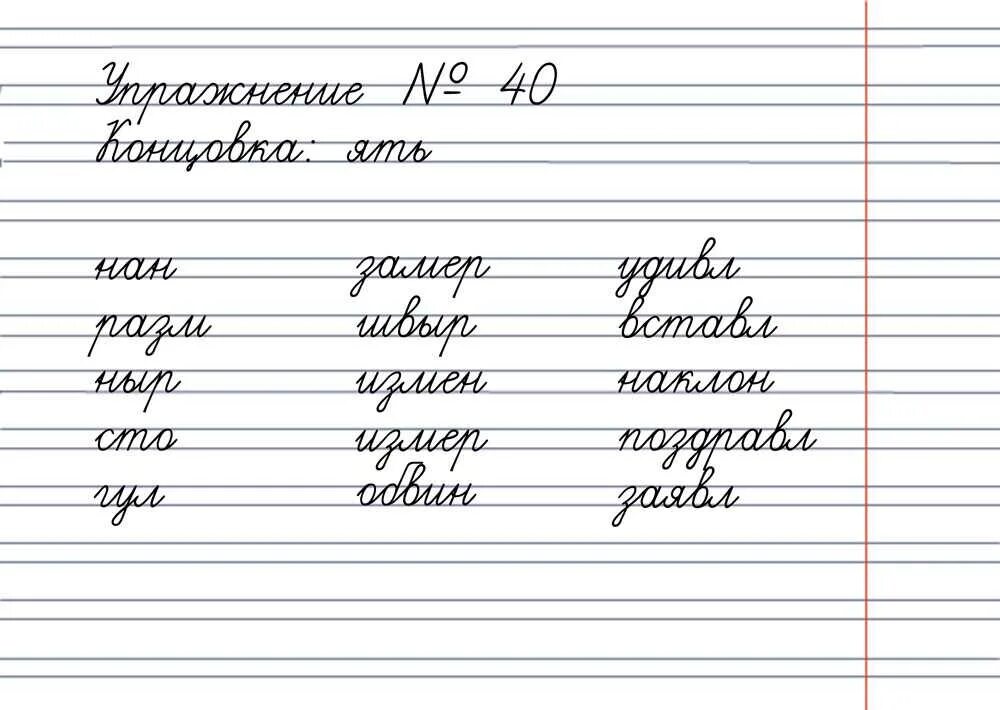 Упражнение № 40
Концовка: ять
нан замер удивл
разм швыр вставл
ныр измен наклон
сто измер поздравл
гул обвин заявл